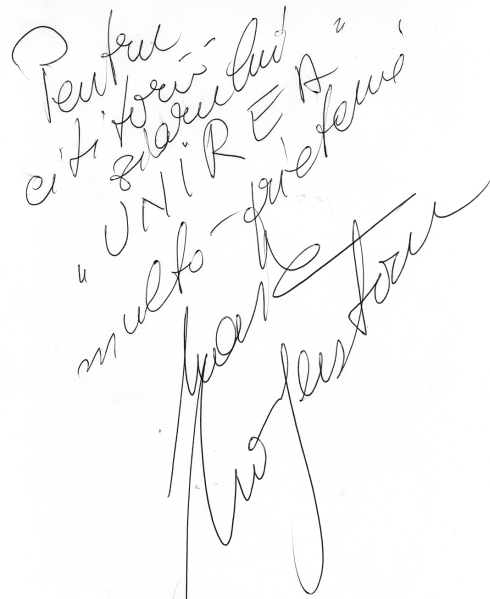 Pentru
cititorii
ziarului
"UNIREA"
multă prietenie